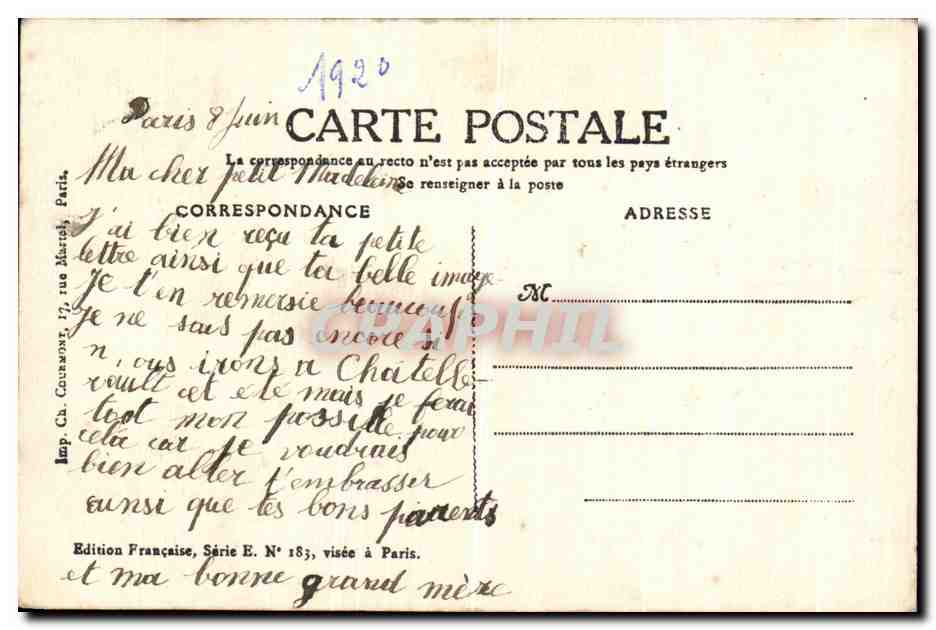 1920
Paris 8 Juin
CARTE POSTALE
La correspondance au recto n'est pas acceptée par tous les pays étrangers
Ma cher petit Madeleine
Se renseigner à la poste
CORRESPONDANCE
ADRESSE
J'ai bien reçu ta petite
lettre ainsi que ta belle image
Je t'en remersie beaucoup
Je ne sais pas encore si
n,ous irons a Chatelle-
rault cet été mais je ferai
tout mon possible pour
cela car je voudrais
bien aller t'embrasser
ainsi que tes bons parents
Edition Française, Série E. N° 183, visée à Paris.
et ma bonne grand mère
M
Imp. Ch. Courmont, 17, rue Martel, Paris.
CPAPHIL